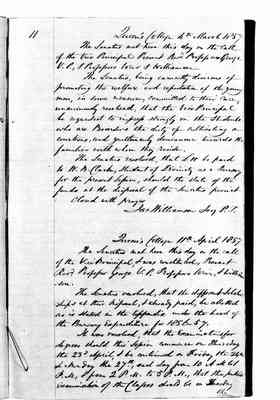 11
Queen's College 4th March 1857
The Senatus met here this day on the call
of the Vice Principal. Present Revd Professor George
V. P., & Professors Weir & Williamson.
The Senatus, being earnestly desirous of
promoting the welfare and reputation of the young
men, in some measure, committed to their care,
unanimously resolved, that the Vice Principal
be requested to impress strongly on the Students
who are Boarders the duty of exhibiting an
courteous, and gentlemanly towards the
families with whom they reside.
The Senatus resolved, that £ 10 be paid
to W. B. Clark, Student of Divinity as a Bursary
for the present Session, should the state of the
funds at the disposal of the Senatus permit
Closed with prayer
Jas Williamson Secy P. T.
Queen's College 11th April 1857
The Senatus met here this day on the call
of the Vice Principal, & was constituted. Present
Revd Professor George V. P. Professors Weir, & William-
son.
The Senatus resolved, that the different Scholar-
ships at their disposal, & already paid, be allotted
as is stated in the Appendix under the head of
the Bursary Expenditure for 1856 & 7.
It was resolved, that the Examinations for
degrees should this Session commence on Thursday
the 23d April, & be continued on Friday the 24th
& Monday the 27th, each day from to
P.M., & from 2 P.M. to 5 P.M., that the public
Examination of the Classes should be on Tuesday